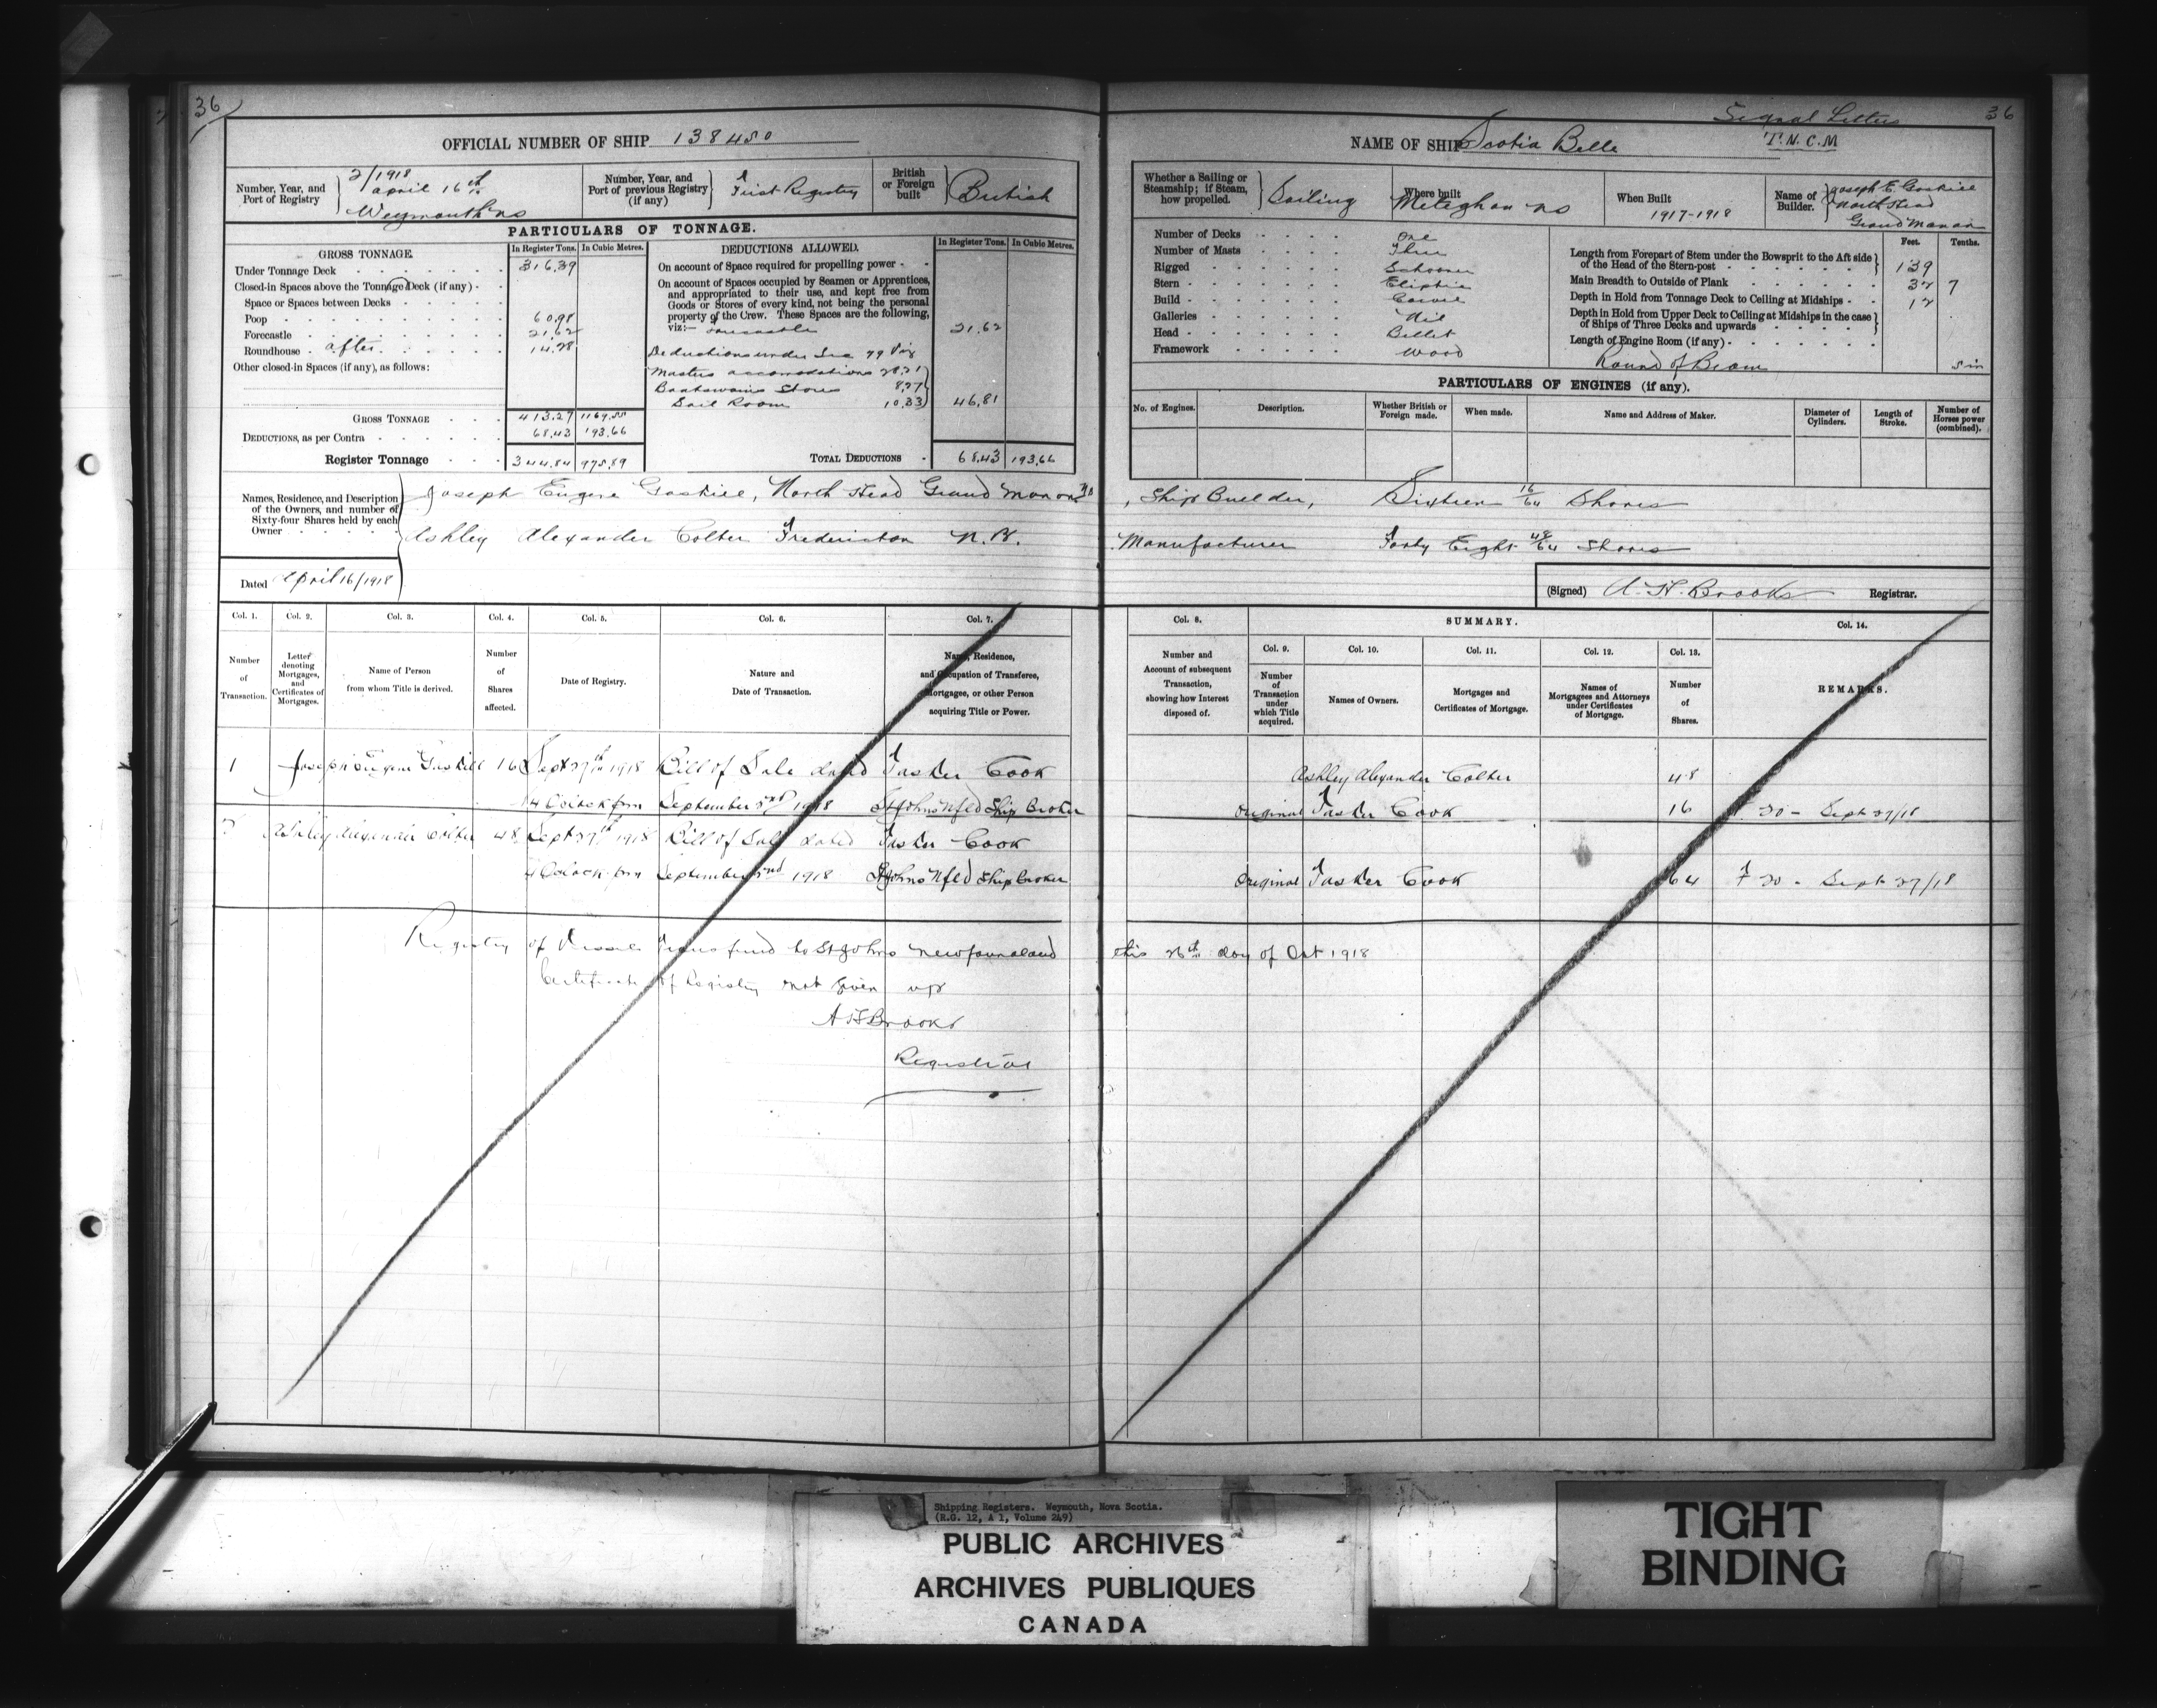 36
OFFICIAL NUMBER OF SHIP 138450
Number, Year, and Port of Registry
2/1918
April 16th
Weymouth NS
Number, Year, and Port of previous Registry (if any)
First Registry
British or Foreign built
British
PARTICULARS OF TONNAGE.
GROSS TONNAGE.
In Register Tons.
In Cubic Metres.
Under Tonnage Deck 316.39
Closed-in Spaces above the Tonnage Deck (if any)
Space or Spaces between Decks
Poop 60.98
Forecastle 21.62
Roundhouse after 14.28
Other closed-in Spaces (if any), as follows:
GROSS TONNAGE 413.27 1169.55
DEDUCTIONS, as per Contra 68.43 193.66
Register Tonnage 344.84 975.89
DEDUCTIONS ALLOWED.
In Register Tons.
In Cubic Metres.
On account of Space required for propelling power
On account of Spaces occupied by Seamen or Apprentices,
and appropriated to their use, and kept free from
Goods or Stores of every kind, not being the personal
property of the Crew. These Spaces are the following,
viz:— Forecastle 21.62
Deductions under Sec 79 viz
Masters accomodations 28.21
Boatswains Stores 8.27
Sail Room 10.33 46.81
TOTAL DEDUCTIONS 68.43 193.66
Names, Residence, and Description of the Owners, and number of Sixty-four Shares held by each Owner
Joseph Eugene Gaskill, North Head Grand Manan NB
Ashley Alexander Colter Fredericton N.B.
Dated April 16/1918
Col. 1.
Number of Transaction.
Col. 2.
Letter denoting Mortgages, and Certificates of Mortgages.
Col. 3.
Name of Person from whom Title is derived.
Col. 4.
Number of Shares affected.
Col. 5.
Date of Registry.
Col. 6.
Nature and Date of Transaction.
Col. 7.
Name, Residence, and Occupation of Transferee, Mortgagee, or other Person acquiring Title or Power.
1 Joseph Eugene Gaskill 16 Sept 27th 1918 Bill of Sale dated Tasker Cook
4 Oclock pm September 2nd 1918 St Johns Nfld Ship Broker
2 Ashley Alexander Colter 48 Sept 27th 1918 Bill of Sale dated Tasker Cook
4 Oclock pm September 2nd 1918 St Johns Nfld Ship Broker
Registry of Vessel Transferred to St Johns Newfoundland
Certificate of Registry not given up
A H Brooks
Registrar
Signal Letters
36
NAME OF SHIP Scotia Belle
T.N.C.M
Whether a Sailing or Steamship; if Steam, how propelled.
Sailing
Where built
Meteghan NS
When Built
1917-1918
Name of Builder.
Joseph E Gaskill
North Head
Grand Manan
Number of Decks One
Number of Masts Three
Rigged Schooner
Stern Eliptic
Build Carvel
Galleries Nil
Head Billet
Framework Wood
Feet. Tenths.
Length from Forepart of Stem under the Bowsprit to the Aft side of the Head of the Stern-post 139
Main Breadth to Outside of Plank 32 7
Depth in Hold from Tonnage Deck to Ceiling at Midships 12
Depth in Hold from Upper Deck to Ceiling at Midships in the case of Ships of Three Decks and upwards
Length of Engine Room (if any)
Round of Beam 5 in
PARTICULARS OF ENGINES (if any).
No. of Engines.
Description.
Whether British or Foreign made.
When made.
Name and Address of Maker.
Diameter of Cylinders.
Length of Stroke.
Number of Horses power (combined).
, Ship Builder, Sixteen 16/64 Shares
Manufacturer Forty Eight 48/64 Shares
(Signed) A. H. Brooks Registrar.
Col. 8.
Number and Account of subsequent Transaction, showing how Interest disposed of.
SUMMARY.
Col. 9.
Number of Transaction under which Title acquired.
Col. 10.
Names of Owners.
Col. 11.
Mortgages and Certificates of Mortgage.
Col. 12.
Names of Mortgagees and Attorneys under Certificates of Mortgage.
Col. 13.
Number of Shares.
Col. 14.
REMARKS.
Ashley Alexander Colter 48
Original Tasker Cook 16 F 20 - Sept 27/18
Original Tasker Cook 64 F 20 - Sept 27/18
this 26th day of Oct 1918
Shipping Registers. Weymouth, Nova Scotia.
(R.G. 12, A 1, Volume 249)
PUBLIC ARCHIVES
ARCHIVES PUBLIQUES
CANADA
TIGHT
BINDING